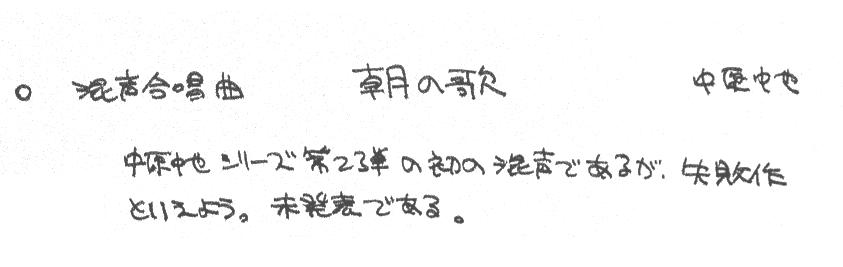 ○ 混声合唱曲 朝の歌 中原中也
中原中也シリーズ第2弾の初の混声であるが、失敗作
といえよう。未発表である。